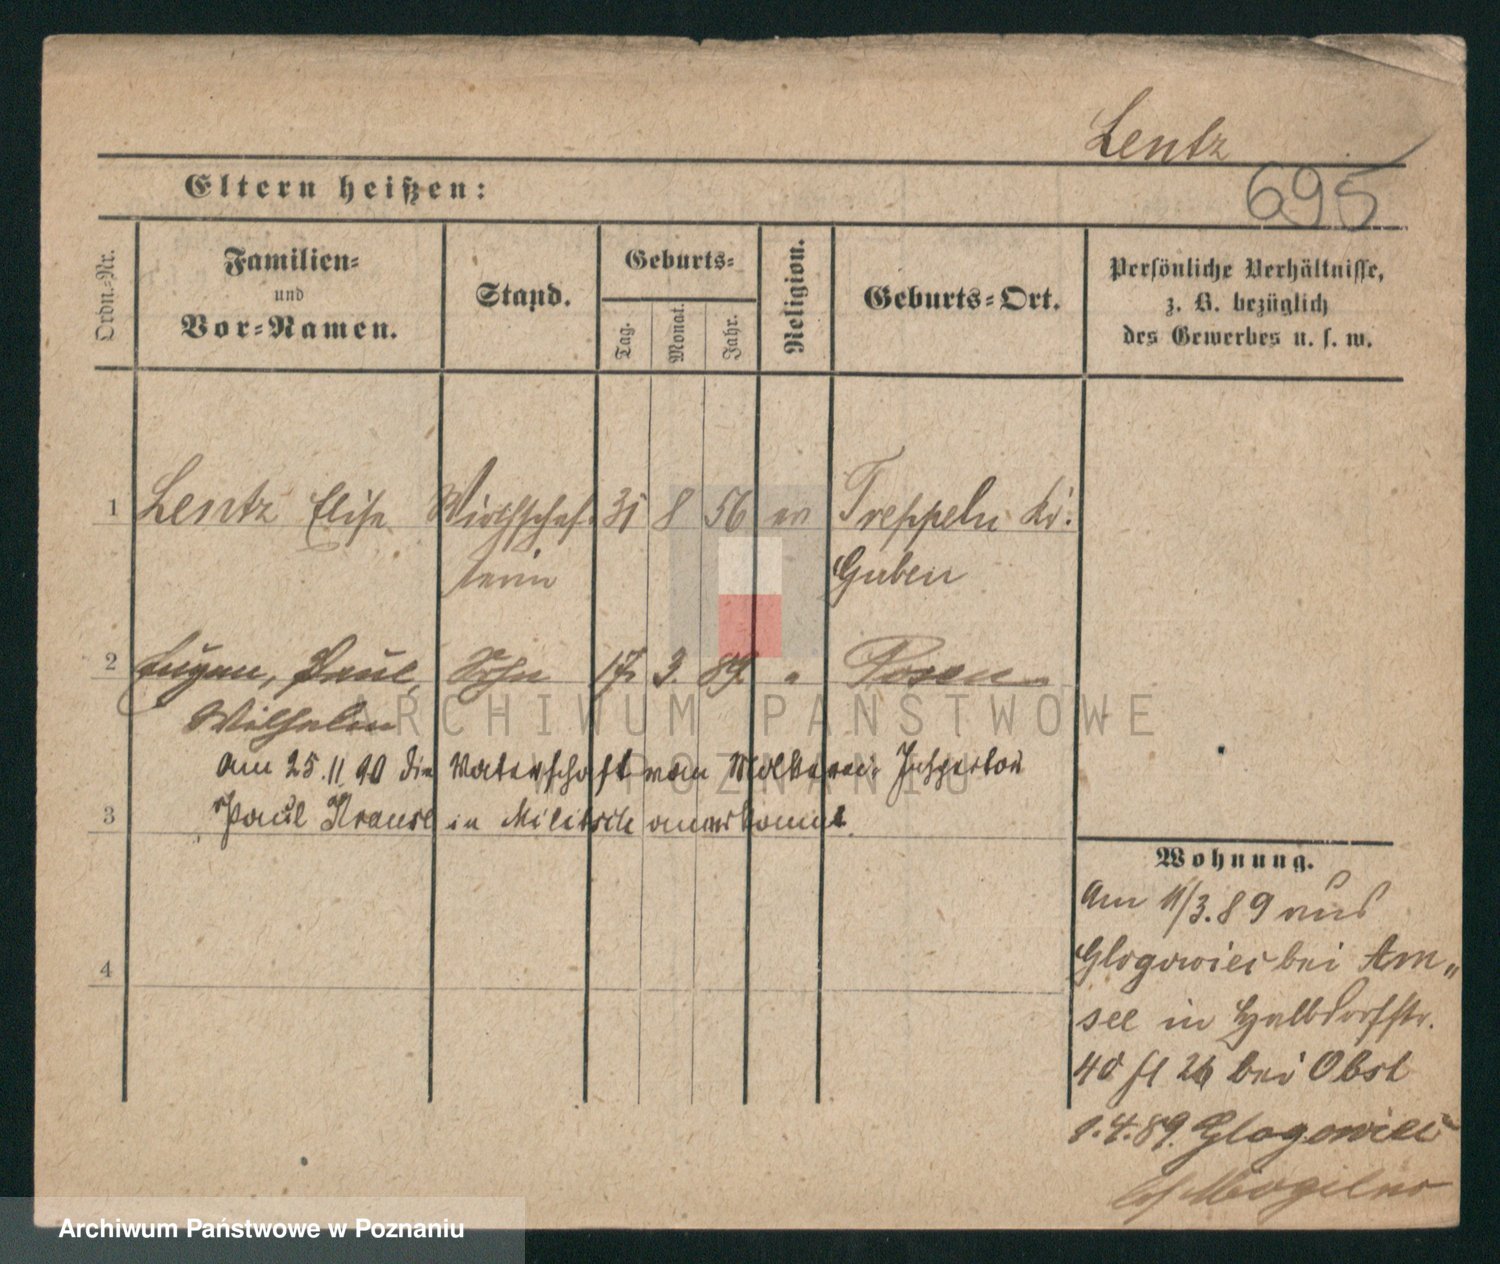 Lentz
695
Eltern heißen:
Ordn.-Nr.
Familien-
und
Vor-Namen.
Stand.
Geburts-
Tag.
Monat.
Jahr.
Religion.
Geburts-Ort.
Persönliche Verhältnisse,
z. B. bezüglich
des Gewerbes u. s. w.
1 Lentz Elise Wirthschaf- 31 8 56 ev Treppeln Kr.
terin Guben
2 Eugen, Paul, Sohn 17. 3. 89. " Posen
Wilhelm
am 25.11.90 die Vaterschaft vom Molkerei Inspector
3 Paul Krause in Militsch anerkannt.
4
Wohnung.
Am 11/3.89 aus
Glogowiec bei Am-
see in Halbdorfstr.
40 bei Obst
1.4.89. Glogowiec
b/ Mogilno
ARCHIWUM PAŃSTWOWE
W POZNANIU
Archiwum Państwowe w Poznaniu